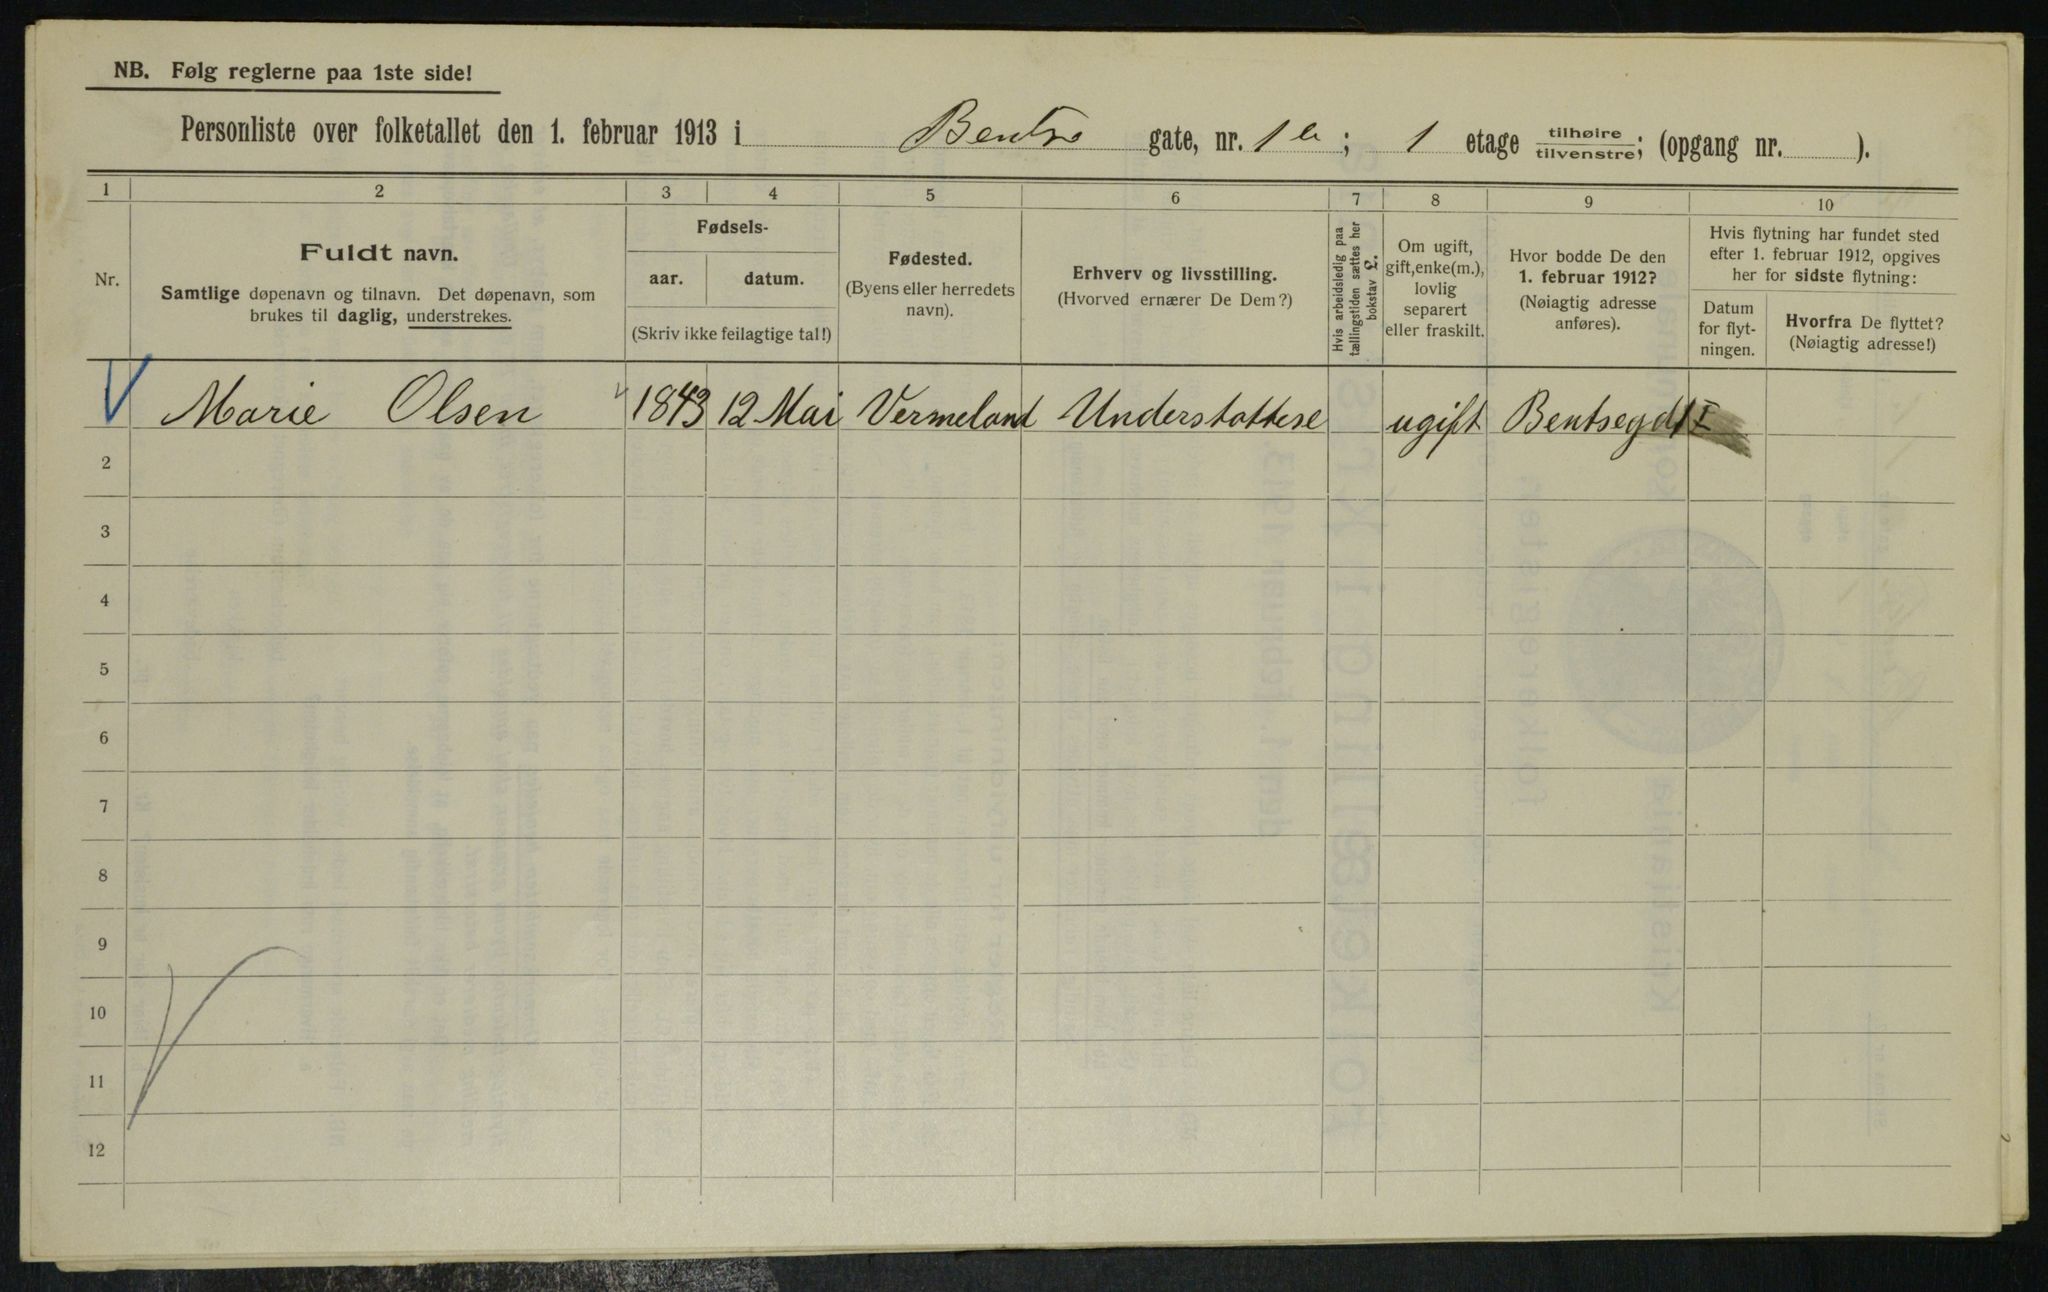 NB. Følg reglerne paa 1ste side!
Personliste over folketallet den 1. februar 1913 i Bentse gate, nr. 1 b; 1 etage tilhøire/tilvenstre; (opgang nr. ).
1 2 3 4 5 6 7 8 9 10
Nr.
Fuldt navn.
Samtlige døpenavn og tilnavn. Det døpenavn, som
brukes til daglig, understrekes.
Fødsels-
aar. datum.
(Skriv ikke feilagtige tal!)
Fødested.
(Byens eller herredets
navn).
Erhverv og livsstilling.
(Hvorved ernærer De Dem?)
Hvis arbeidsledig paa
tællingstiden sættes her
bokstav L.
Om ugift,
gift, enke(m.),
lovlig
separert
eller fraskilt.
Hvor bodde De den
1. februar 1912?
(Nøiagtig adresse
anføres).
Hvis flytning har fundet sted
efter 1. februar 1912, opgives
her for sidste flytning:
Datum
for flyt-
ningen.
Hvorfra De flyttet?
(Nøiagtig adresse!)
Marie Olsen 1843 12 Mai Vermeland Understøttese ugift Bentsegd 1 I
2
3
4
5
6
7
8
9
10
11
12